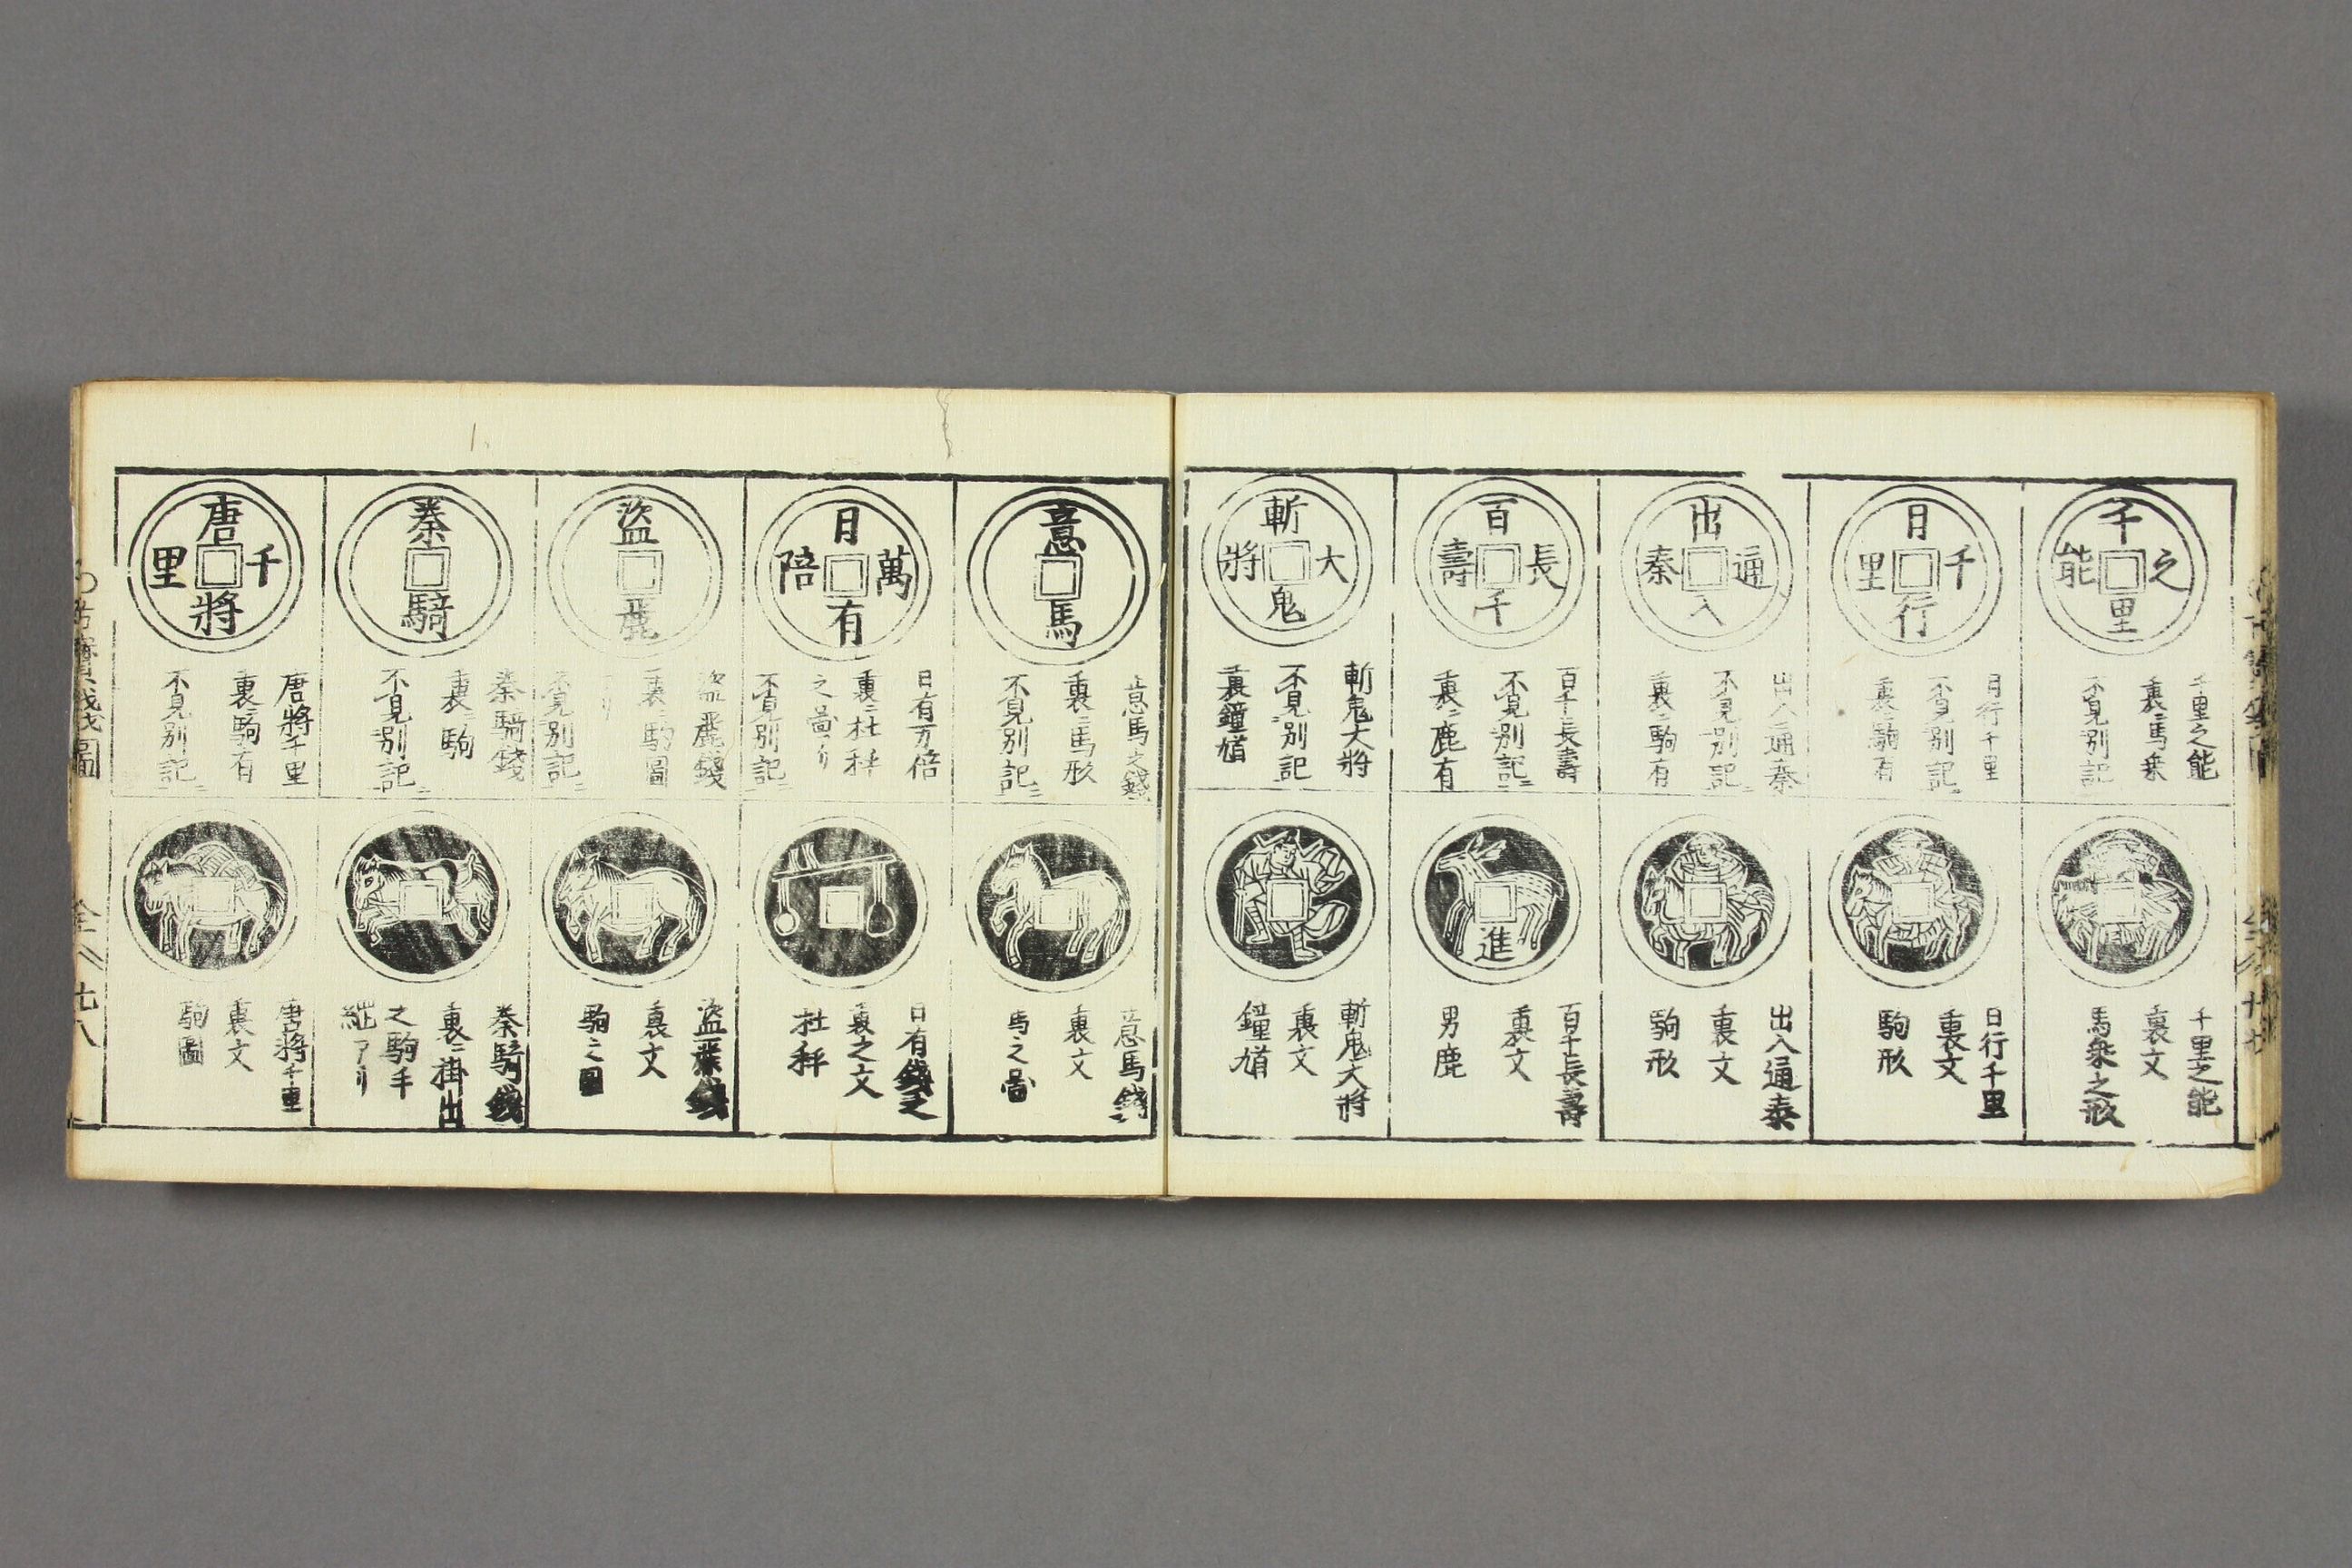 千里之能
千里之能
裏ニ馬乗
不見別記ニ
千里之能
裏文
馬乗之形
日行千里
日行千里
不見別記ニ
裏ニ駒有
日行千里
裏文
駒形
出入通泰
出入通泰
不見別記ニ
裏ニ駒有
出入通泰
裏文
駒形
百千長壽
百千長壽
不見別記ニ
裏ニ鹿有
進
百千長壽
裏文
男鹿
斬鬼大將
斬鬼大將
不見別記
裏鐘馗
斬鬼大將
裏文
鐘馗
意馬
意馬之錢
裏ニ馬形
不見別記ニ
意馬錢
裏文
馬之啚
日有萬陪
日有万倍
裏ニ杜秤
之啚
不見別記ニ
日有錢之
裏之文
杜秤
盜驪
盜驪錢
裏ニ駒圖
不見別記ニ
盜驪錢
裏文
駒之圖
秦騎
秦騎錢
裏ニ駒
不見別記ニ
秦騎錢
裏ニ掛出
之駒手
唐將千里
唐將千里
裏ニ駒有
不見別記ニ
唐將千里
裏文
駒圖
寳錢圖
全